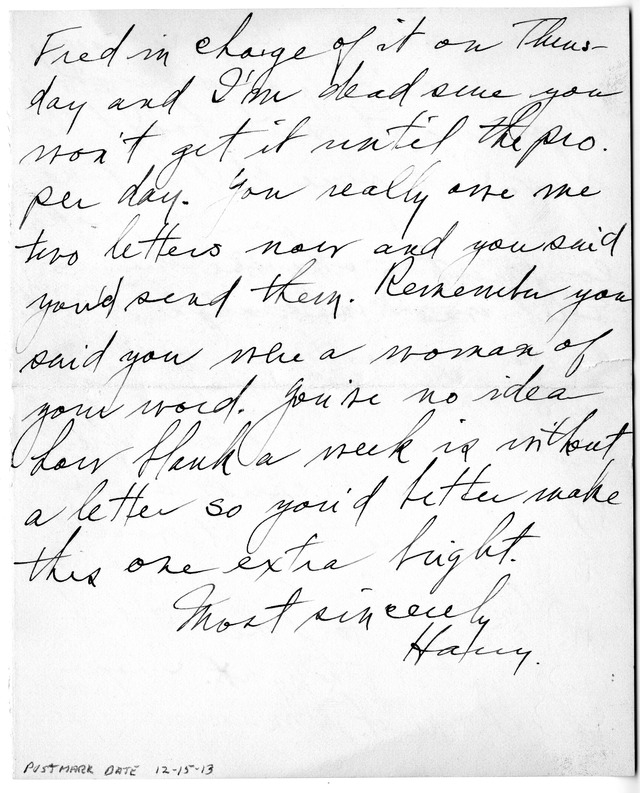 Fred in charge of it on Thurs-
day and I'm dead sure you
won't get it until the pro.
per day. You really owe me
two letters now and you said
you'd send them. Remember you
said you were a woman of
your word. You've no idea
how blank a week is without
a letter so you'd better make
this one extra bright.
Most sincerely
Harry.
POSTMARK DATE 12-15-13